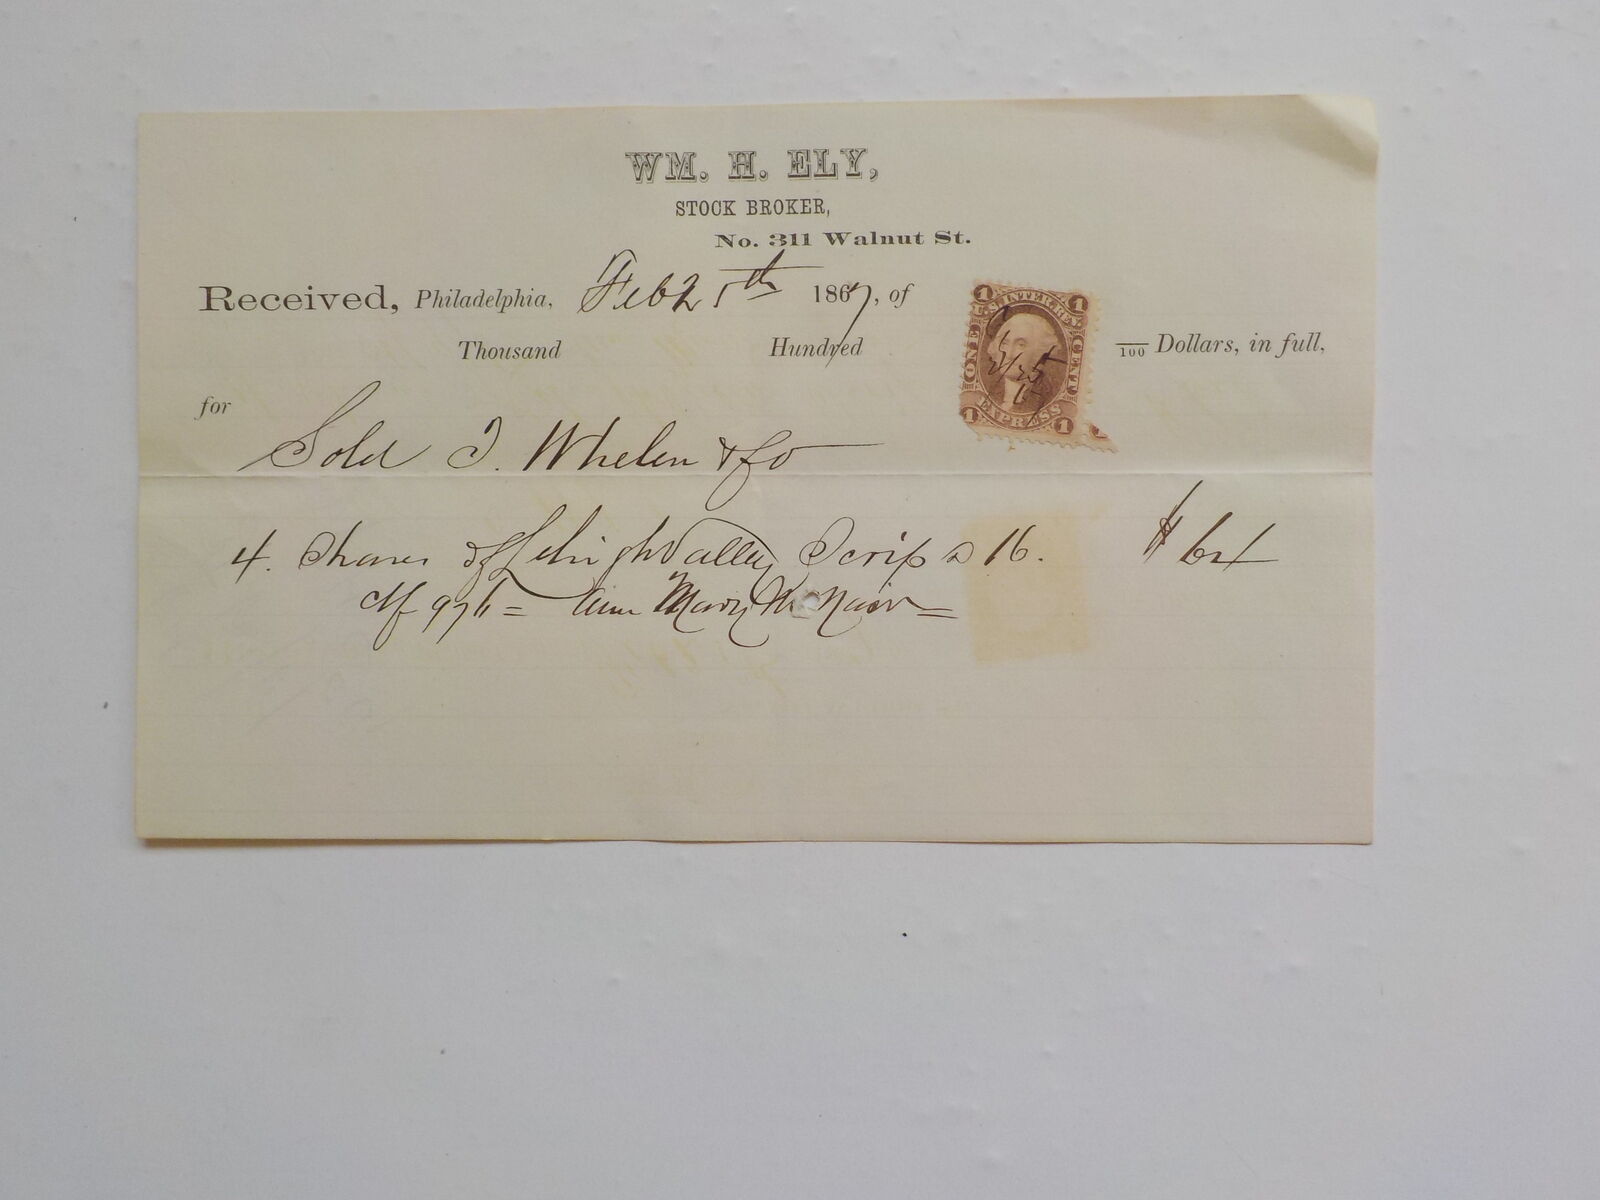 WM. H. ELY,
STOCK BROKER,
No. 311 Walnut St.
Received, Philadelphia, Feb 25th 1867, of
Thousand Hundred /100 Dollars, in full,
for
Sold T. Whelen & Co
4. Shares of Lehigh Valley Scrip a 16. $64
of Ann Mary McNair
1 U.S. INTER. REV. 1
ONE CENT
2/25
1 EXPRESS 1